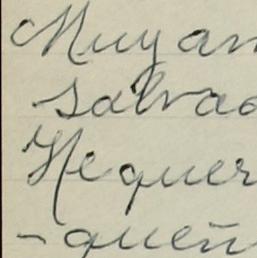 Muy am
Salvad
He quer
-queñ